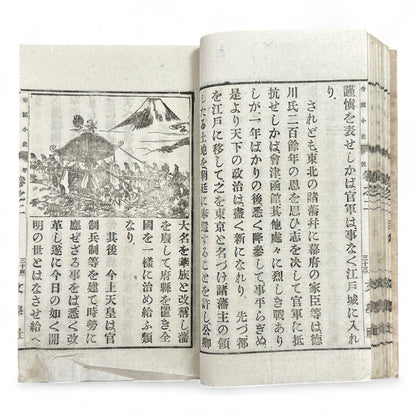 謹愼を表せしかば官軍は事なく江戸城に入れ
り
されども東北の諸藩幷に幕府の家臣等は德
川氏二百餘年の恩を思ひ志を決して官軍に抵
抗せしかば會津函館其他處々に烈しき戰あり
しが一年ばかりの後悉く降參して事平らぎぬ
是より天下の政治は盡く新になれり 先づ都
を江戸に移して之を東京と名づけ諸藩主の領
したる土地を朝廷に奉還することを許し公卿
大名を華族と改稱し藩
を廢して府縣を置き全
國を一樣に治め給ふ類
なり
其後 今上天皇は官
制兵制等を建て時勢に
應ぜざる事をば悉く改
革し遂に今日の如く開
明の世とはなさせ給へ
帝國小史
文學社